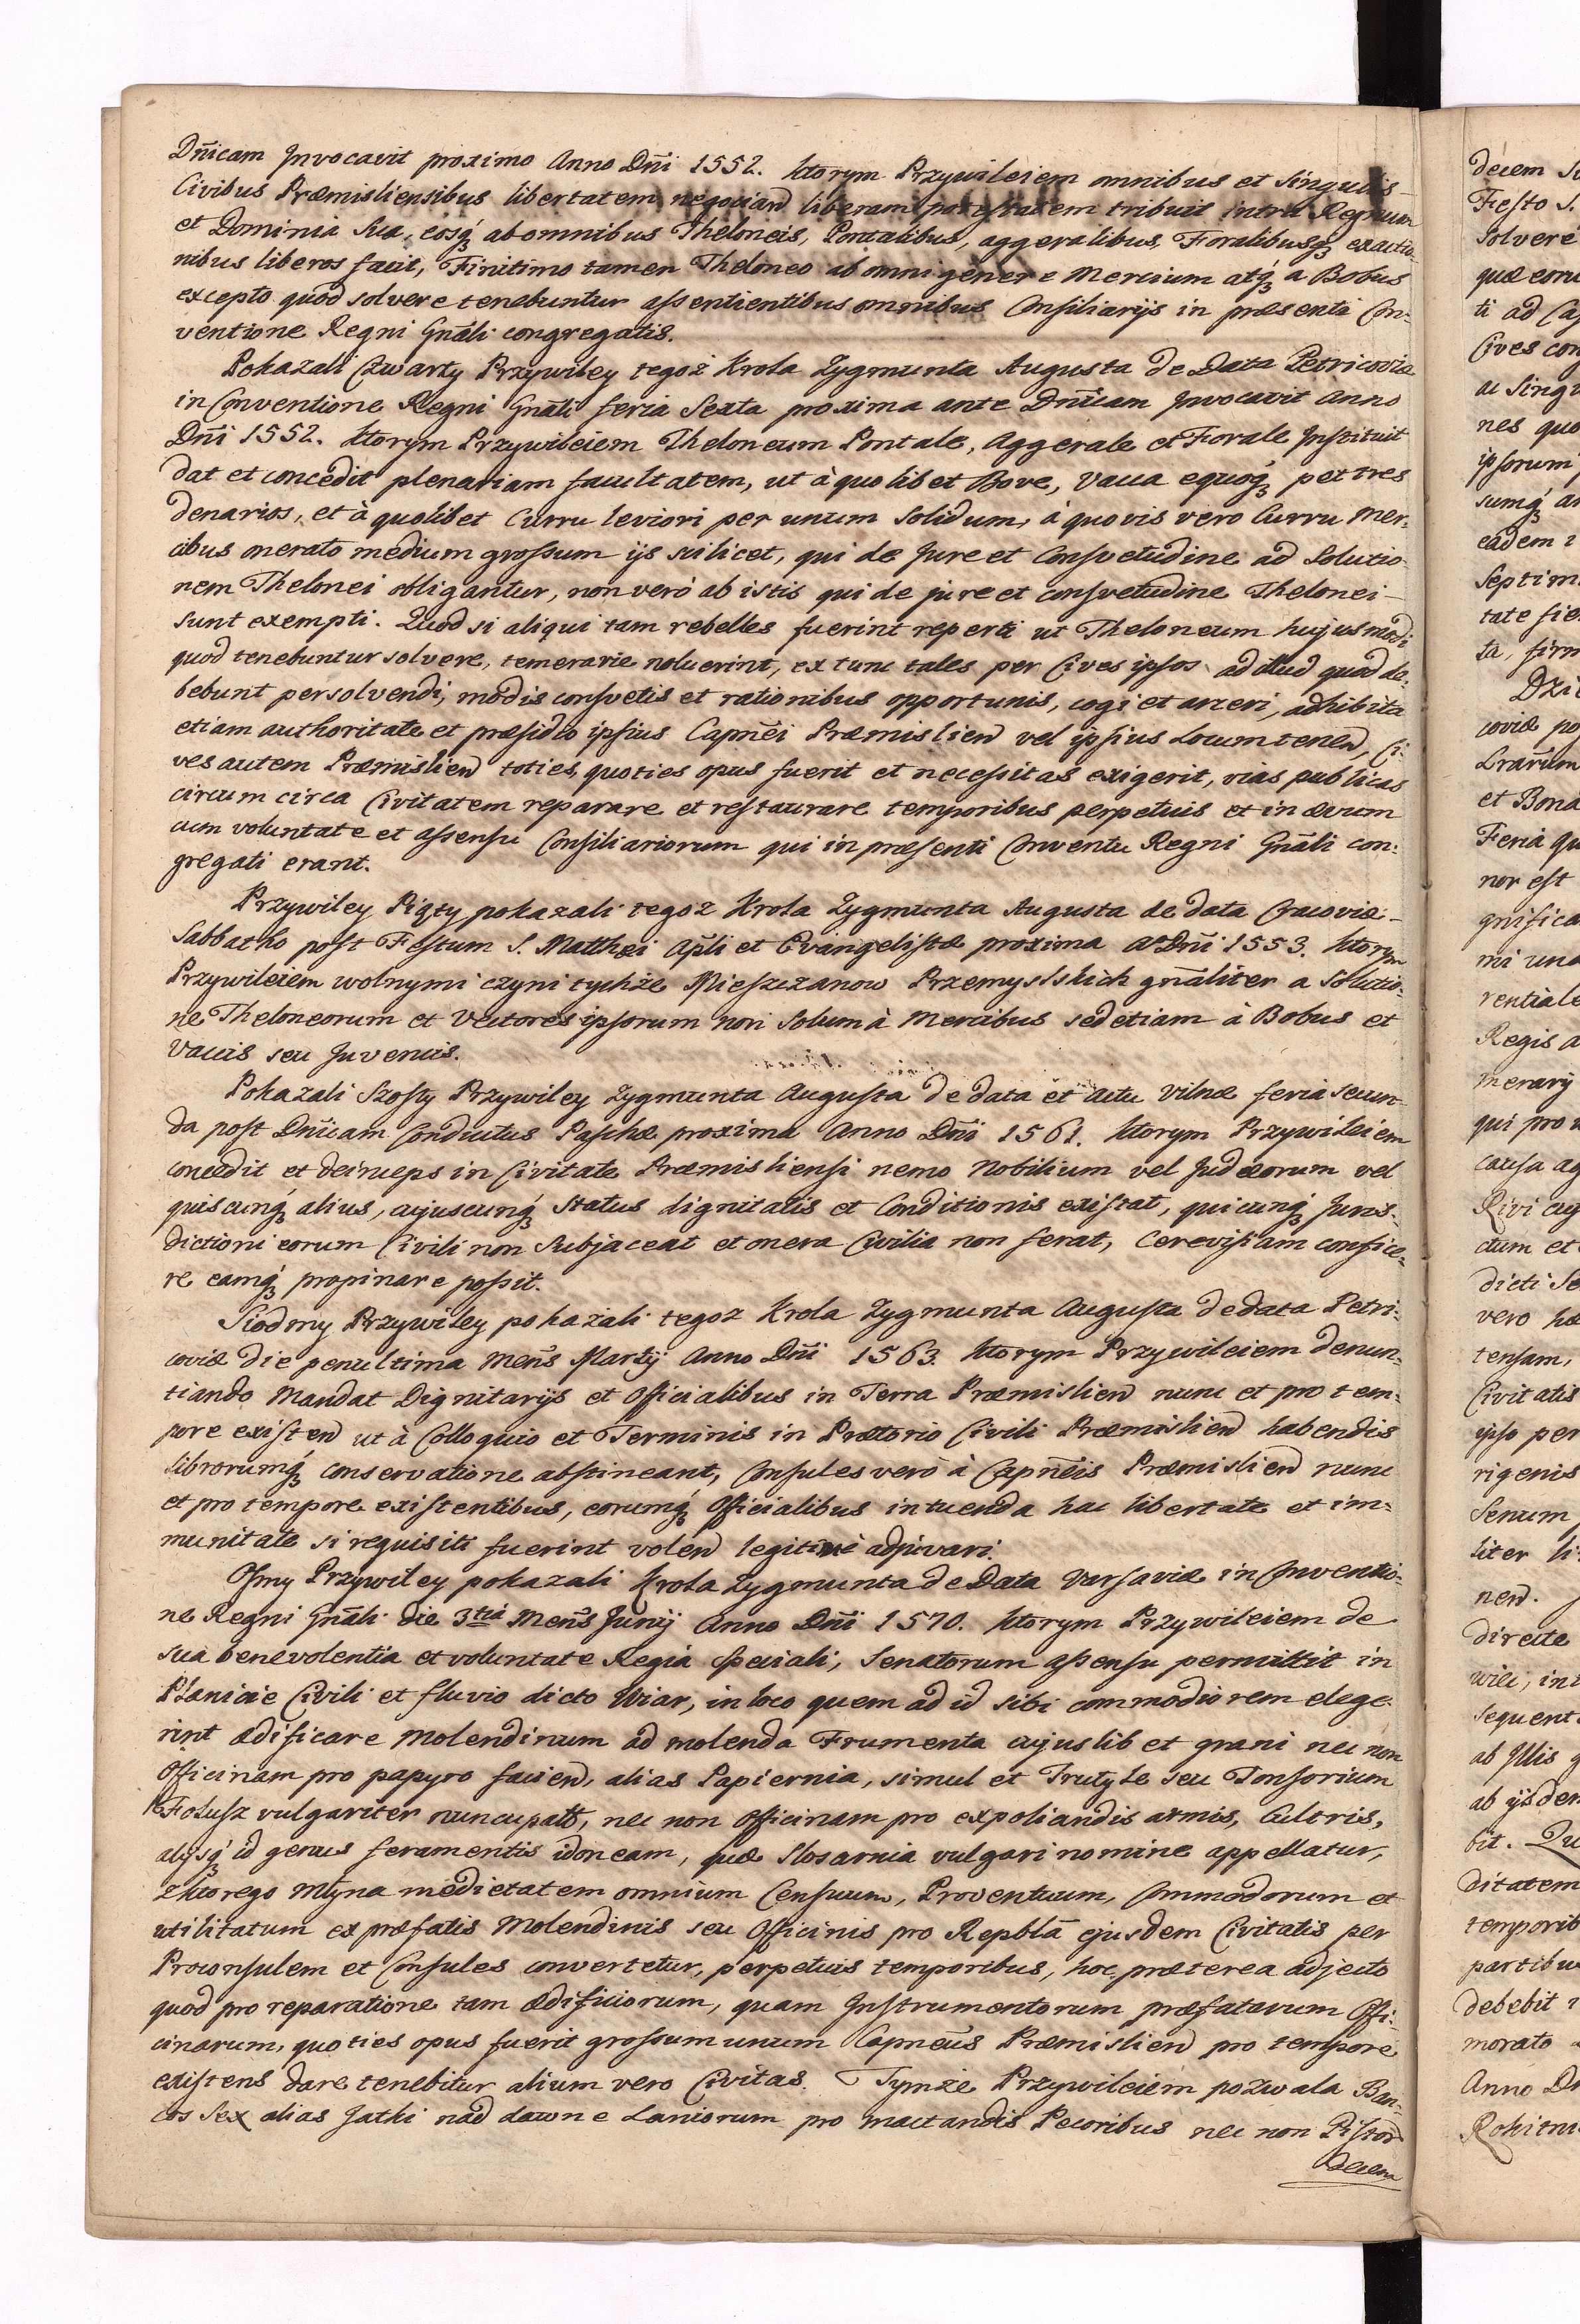 Dn̄icam Invocavit proximo Anno Dn̄i 1552. ktorym Przywileiem omnibus et Singulis
Civibus Præmisliensibus libertatem negotiand liberam potestatem tribuit intra Regnum
et Dominia Sua, eosq́ꝫ ab omnibus Theloneis, Pontalibus, aggeralibus, Foralibusqꝫ exactio-
nibus liberos facit, Finitimo tamen Theloneo ab omni genere Mercium atq́ꝫ a Bobus
excepto quod solvere tenebuntur assentientibus omnibus Consiliarijs in præsenti Con-
ventione Regni Gn̄ali congregatis.
Pokazali Czwarty Przywiley tegoż Krola Zygmunta Augusta de Data Petricoviæ
in Conventione Regni Gn̄ali feria Sexta proxima ante Dn̄icam Invocavit Anno
Dn̄i 1552. ktorym Przywileiem Theloneum Pontale, Aggerale et Forale Instituit
dat et concedit plenariam facultatem, ut à quolibet Bove, Vacca equoq́ꝫ per tres
denarios, et à quolibet Curru leviori per unum Solidum, à quovis vero Curru Mer-
cibus onerato medium grossum ijs scilicet, qui de Jure et Consvetudine ad Solutio-
nem Thelonei obligantur, non verò ab istis qui de jure et consvetudine Thelonei
sunt exempti. Quod si aliqui tam rebelles fuerint reperti ut Theloneum hujusmodi
quod tenebuntur solvere, temerarie noluerint, ex tunc tales per Cives ipsos ad illud quod de-
bebunt persolvendi, modis consvetis et rationibus opportunis, cogi et arceri, adhibita
etiam authoritate et præsidio ipsius Capn̄ei Præmislien vel ipsius Locumtenen, Ci-
ves autem Præmislien toties, quoties opus fuerit et necessitas exigerit, vias publicas
circum circa Civitatem reparare et restaurare temporibus perpetuis et in ævum
cum voluntate et assensu Consiliariorum qui in præsenti Conventu Regni Gn̄ali con-
gregati erant.
Przywiley Piąty pokazali tegoż Krola Zygmunta Augusta de data Cracoviæ
Sabbatho post Festum S. Matthæi Ap̄li et Evangelistæ proxima Aº Dn̄i 1553. ktorym
Przywileiem wolnymi czyni tychże Mieszczanow Przemyslskich gn̄aliter a Solutio-
ne Theloneorum et Vectores ipsorum non Solum à Mercibus sed etiam à Bobus et
Vaccis seu Juvencis.
Pokazali Szosty Przywiley Zygmunta Augusta de data et actu Vilnæ feria secun-
da post Dn̄icam Conductus Paschæ proxima Anno Dn̄i 1561. ktorym Przywileiem
concedit et deinceps in Civitate Præmisliensi nemo Nobilium vel Judæorum vel
quiscunq́ꝫ alius, cujuscunq́ꝫ Status dignitatis et Conditionis existat, quicunq́ꝫ Juris-
dictioni eorum Civili non Subjaceat et onera Civilia non ferat, Cerevisiam confice-
re eamq́ꝫ propinare possit.
Siodmy Przywiley pokazali tegoż Krola Zygmunta Augusta de data Petri-
coviæ die penultima Mens̄ Martij Anno Dn̄i 1563. ktorym Przywileiem denun-
tiando Mandat Dignitarijs et Officialibus in Terra Præmislien nunc et pro tem-
pore existen ut à Colloquio et Terminis in Prætorio Civili Præmislien habendis
librorumq́ꝫ conservatione abstineant, Consules verò à Capn̄eis Præmislien nunc
et pro tempore existentibus, eorumq́ꝫ Officialibus in tuenda hac libertate et im-
munitate si requisiti fuerint volen legitimè adjuvari.
Osmy Przywiley pokazali Krola Zygmunta de Data Varsaviæ in Conventio-
ne Regni Gn̄ali die 3tia Mens̄ Junij Anno Dn̄i 1570. ktorym Przywileiem de
sua benevolentia et voluntate Regia Speciali, Senatorum assensu permittit in
Planicie Civili et fluvio dicto Wiar, in loco quem ad id sibi commodiorem elege-
rint ædificare Molendinum ad molenda Frumenta cujuslibet grani nec non
Officinam pro papyro facien, alias Papiernia, simul et Trutyle seu Tonsorium
Folusz vulgariter nuncupatt, nec non Officinam pro expoliandis armis, Cultris,
alijsq́ꝫ id genus feramentis idoneam, quæ Slosarnia vulgari nomine appellatur,
z ktorego Młyna medietatem omnium Censuum, Proventuum, Commodorum et
utilitatum ex præfatis Molendinis seu Officinis pro Repblā ejusdem Civitatis per
Proconsulem et Consules convertetur, perpetuis temporibus, hoc præterea adjecto
quod pro reparatione tam Ædificiorum, quam Instrumentorum præfatarum Offi-
cinarum, quoties opus fuerit grossum unum Capneus̄ Præmislien pro tempore
existens dare tenebitur alium vero Civitas. Tymże Przywileiem pozwala Ban-
cos Sex alias Jatki nad dawne Laniorum pro mactandis Pecoribus nec non Pistor
Decem